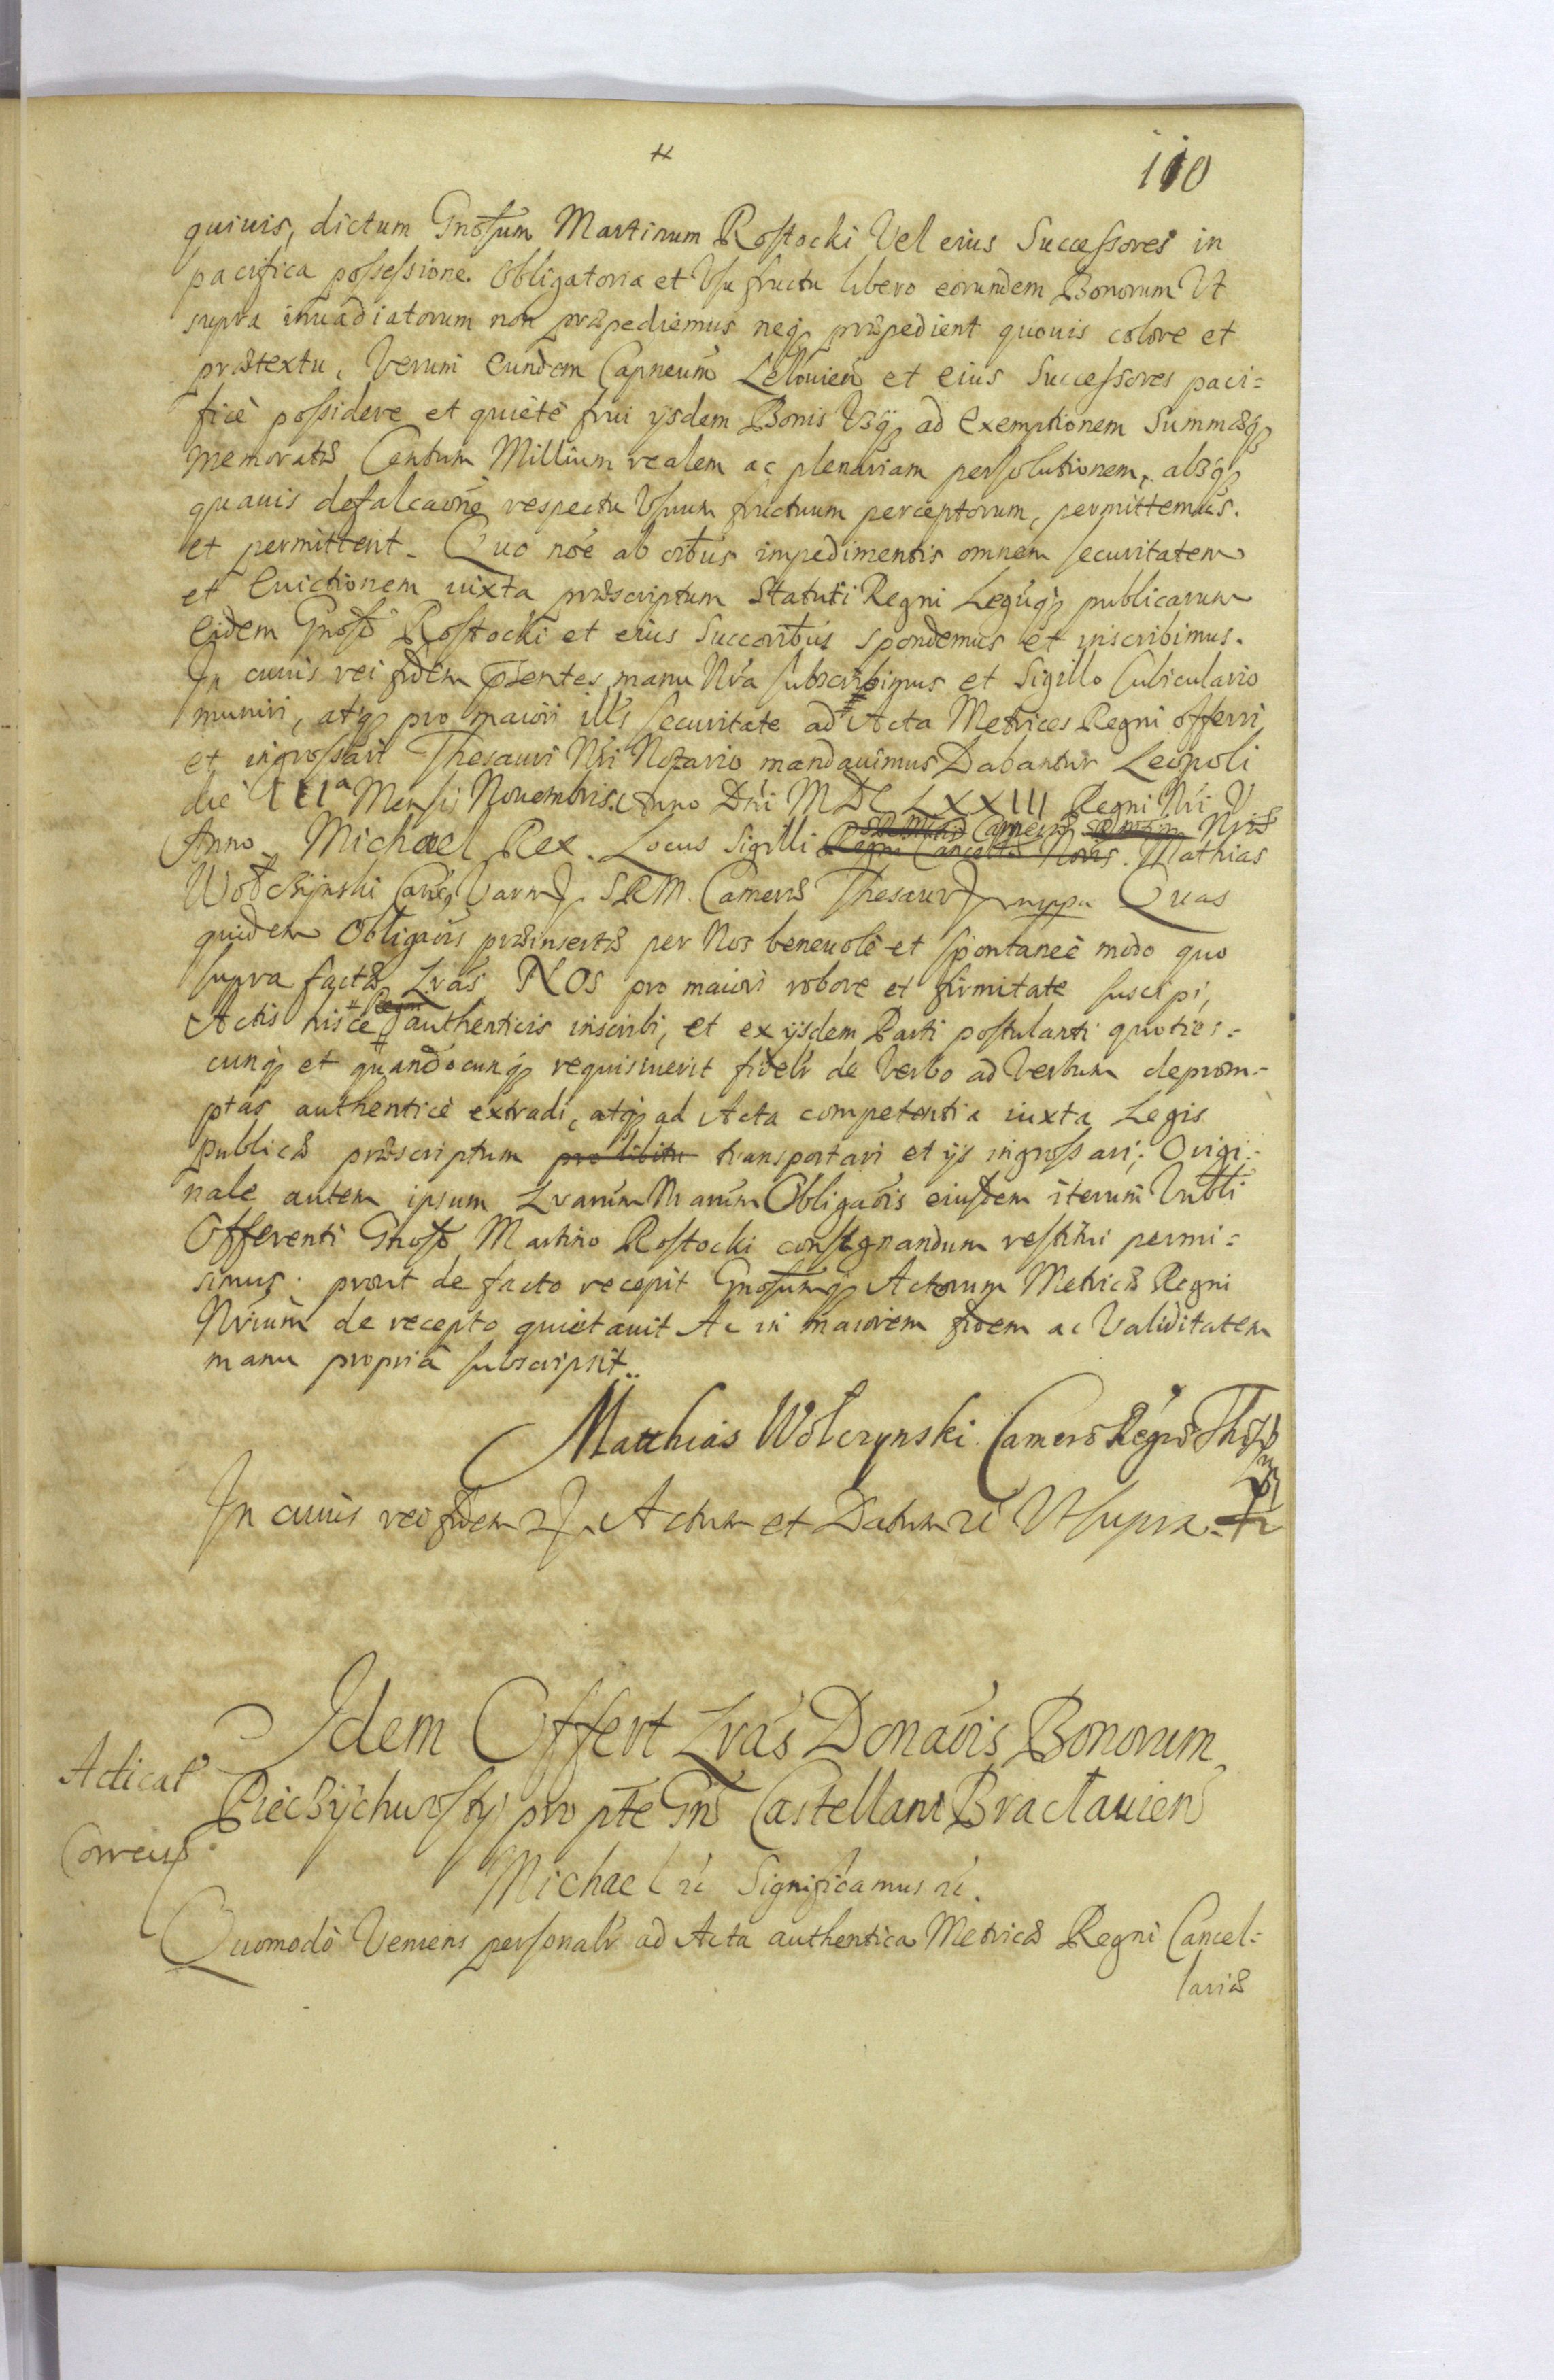 110
quivis, dictum Gnosum Martinum Rostocki Vel eius Successores in
pacifica possessione Obligatoria et Vsufructu libero eorundem Bonorum Vt
supra invadiatorum non præpediemus neq præpedient quovis colore et
prætextu, Verum Eundem Capneum Lelovien et eius Successores paci=
ficè possidere et quiètè frui ijsdem Bonis Vsq ad exemptionem Summæq
memoratæ Centum Millium realem ac plenariam persolutionem, absq
quavis defalcaone respectu Vsuum fructuum perceptorum, permittemus.
et permittent. Quo noe ab oibus impedimentis omnem securitatem
et Evictionem iuxta præscriptum Statuti Regni Leguq publicarum
Eidem Gnoso Rostocki et eius Succoribus spondemus et inscribimus.
In cuius rei fidem pntes manu Nra subscribimus et Sigillo Cubiculario
muniri, atq pro maiori illis securitate ad Acta Metrices Regni offerri
et ingrossari Thesauri Nri Notario mandavimus Dabantur Leopoli
die IIIa Mensis Novembris Anno Dni MDCLXXIII Regni Nri V
Cameræ Nræ
Anno Michael Rex. Locus Sigilli Regni Cancell Noris. Mathias
Wolczijnski SRM. Cameræ Thesaur mppa Quas
quidem Obligaois præinsertæ per Nos benevolè et spontaneè modo quo
supra factæ Lras NOS pro maiori robore et firmitate suscipi,
Actis hisce authenticis inscribi, et ex ijsdem Parti postulanti quoties=
cunq et quandocunq requisiverit fidelr de Verbo ad Verbum deprom=
ptas authenticè extradi, atq ad Acta competentia iuxta Legis
publicæ præscriptum pro libitu transportari et ijs ingrossari; Origi=
nale autem ipsum Lrarum Nrarum Obligaois eiusdem iterum
Offerenti Gnoso Martino Rostocki consignandum restitui permi=
simus: prout de facto recepit Gnosumq Actorum Metricæ Regni
Nrium de recepto quietavit Ac in maiorem fidem ac Validitatem
manu propriâ subscripsit..
Matthias Wolczynski Cameræ Regiæ
In cuius rei fidem Actum et Datum Vt supra
Idem Offert Lras Donaois Bonorum
Acticat
Piecżychwosty pro pte Gn Castellani Braclavien
Correcta
Michael Significamus
Quomodò Veniens personalr ad Acta authentica Metricæ Regni Cancel=
lariæ